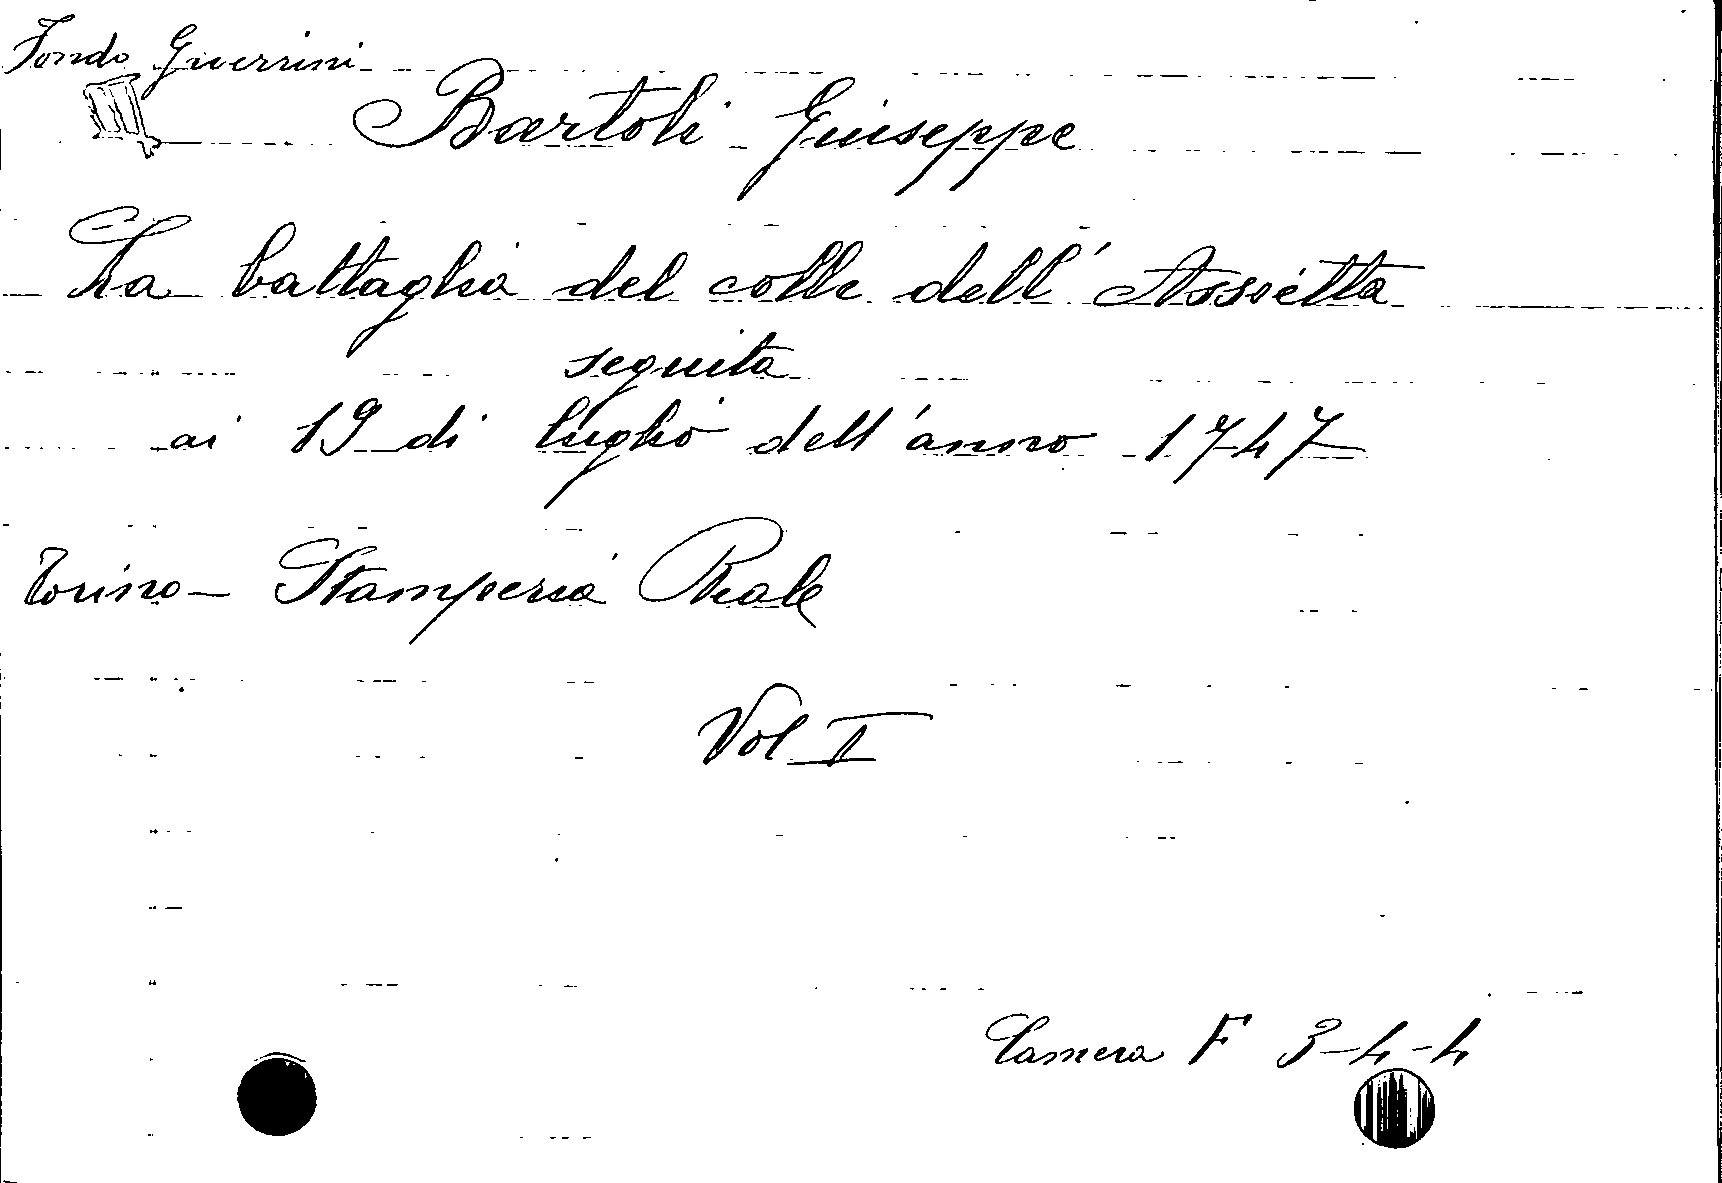 Fondo Guerrini
Bartoli Giuseppe
La battaglia del colle dell'Assietta
seguita
ai 19 di luglio dell'anno 1747
Torino - Stamperia Reale
Vol I
Camera F 3-4-4